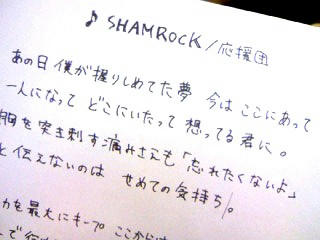 ♪ SHAMROCK/応援団
あの日 僕が握りしめてた夢 今は ここにあって
一人になって どこにいたって 想ってる君に。
胸を突き刺す痛みさえも「忘れたくないよ」
と 伝えないのは せめての気持ち。
力を最大にキープ ここから